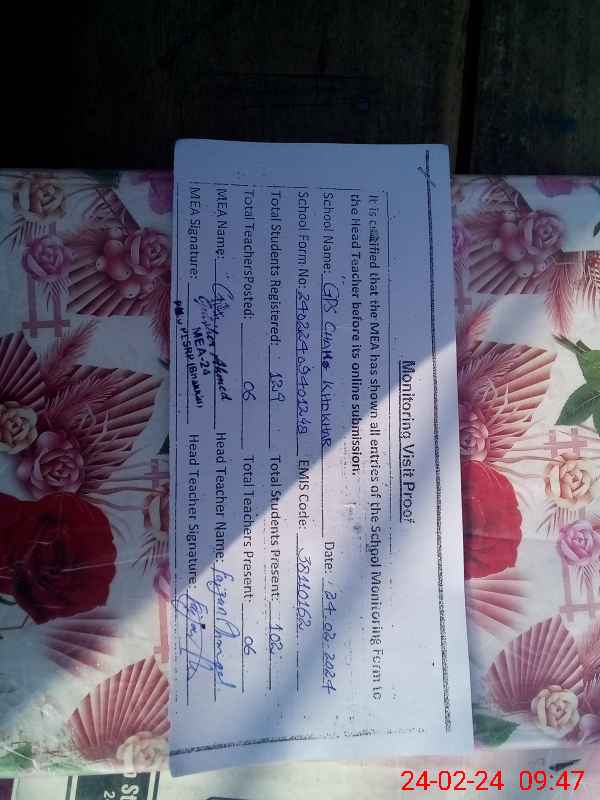 Monitoring Visit Proof
It is certified that the MEA has shown all entries of the School Monitoring Form to
the Head Teacher before its online submission.
School Name: GPS CHAHE KHOKHAR Date: 24.02.2024
School Form No: EMIS Code: 38110162
Total Students Registered: 129 Total Students Present: 102
Total TeachersPosted: 06 Total Teachers Present: 06
MEA Name: Ahmed Head Teacher Name:
MEA-24
MEA Signature: Head Teacher Signature:
24-02-24 09:47